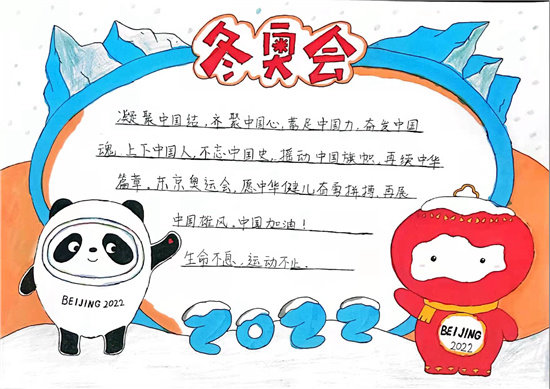 冬奥会
凝聚中国结，齐聚中国心，蓄足中国力，奋发中国
魂，上下中国人，不忘中国史，摇动中国旗帜，再续中华
篇章，东京奥运会，愿中华健儿奋勇拼搏，再展
中国雄风，中国加油！
生命不息，运动不止．
BEIJING 2022
BEIJING
2022
2022